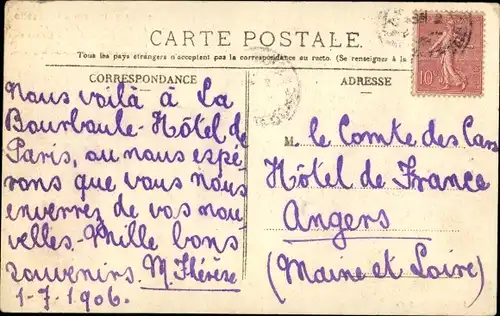 CARTE POSTALE.
Tous les pays étrangers n'acceptent pas la correspondance au recto. (Se renseigner à la
CORRESPONDANCE
Nous voilà à La
Bourboule-Hôtel de
Paris, où nous espé-
rons que vous nous
enverrez de vos nou-
velles.-Mille bons
souvenirs. M. Thérèse
1-7.1906.
ADRESSE
10
M. le Comte des Cars
Hôtel de France
Angers
(Maine et Loire)